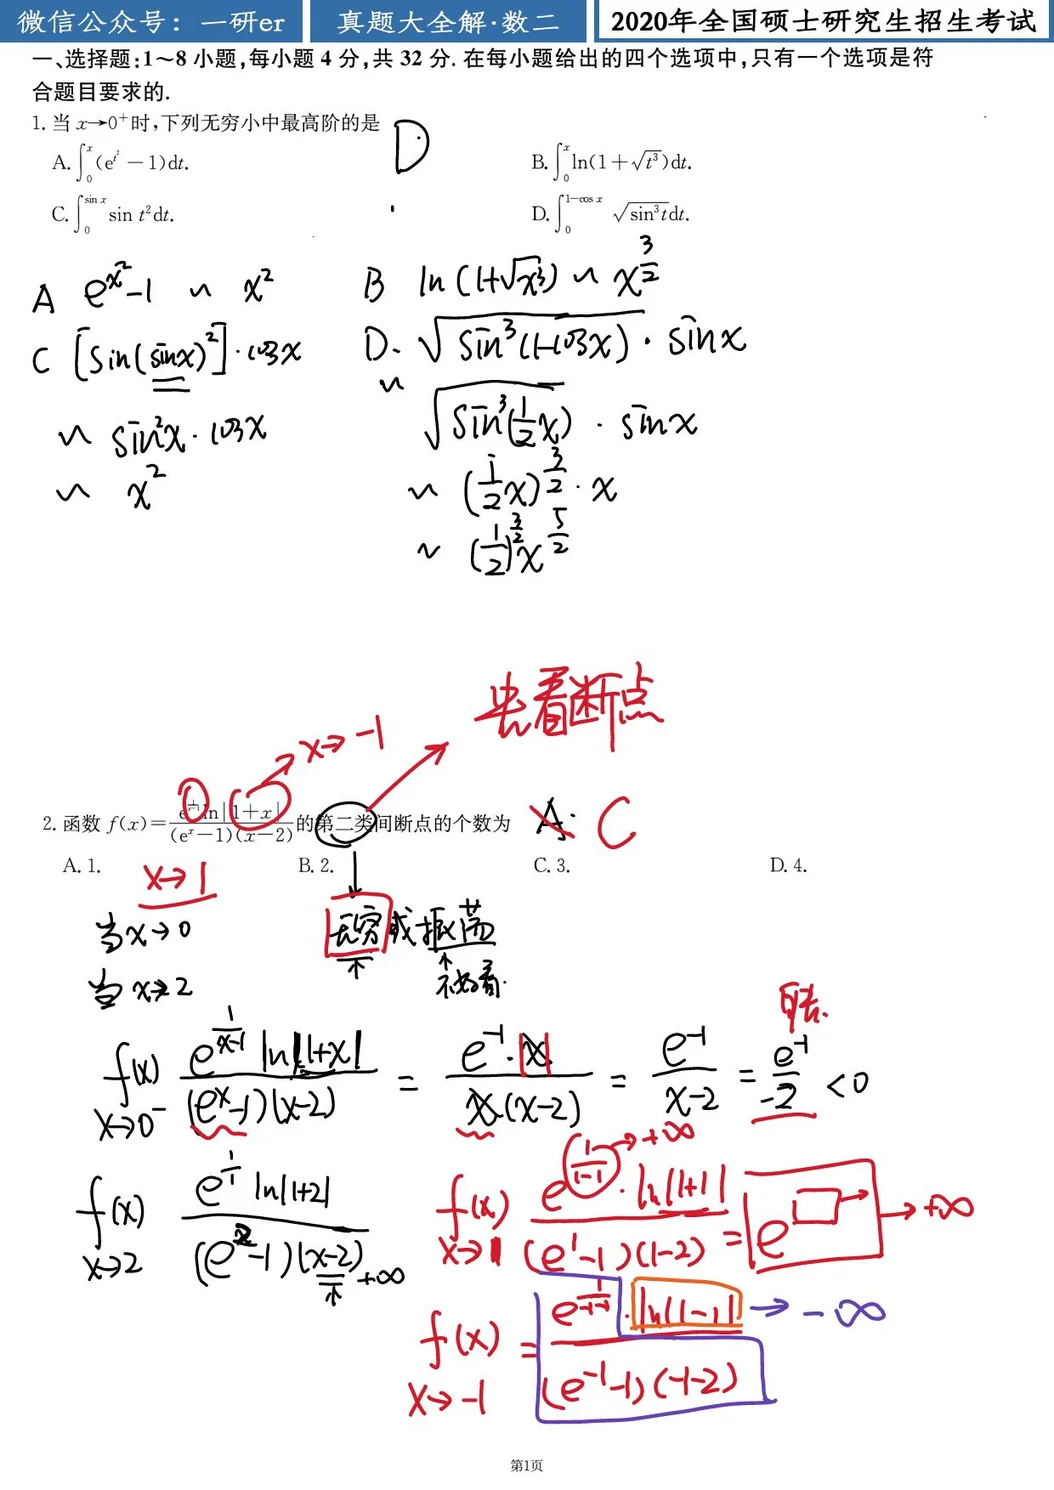 微信公众号：一研er
真题大全解·数二
2020年全国硕士研究生招生考试
一、选择题:1～8 小题,每小题 4 分,共 32 分. 在每小题给出的四个选项中,只有一个选项是符
合题目要求的.
1. 当 x→0⁺时,下列无穷小中最高阶的是 D
A. ∫₀ˣ(e^{t²} − 1)dt.
B. ∫₀ˣ ln(1 + √t³)dt.
C. ∫₀^{sin x} sin t²dt.
D. ∫₀^{1−cos x} √sin³t dt.
A e^{x²}-1 ~ x²
B ln(1+√x³) ~ x^{3/2}
C [sin(sinx)²]·cosx
D. √sin³(1-cosx) · sinx
~ sin²x·cosx
~ √sin³(½x) · sinx
~ x²
~ (½x)^{3/2}·x
~ (½)^{3/2} x^{5/2}
先看断点
x→-1
2. 函数 f(x)= e^{1/(x-1)} ln|1+x| / (eˣ−1)(x−2) 的第二类间断点的个数为 A. C
A. 1.
B. 2.
C. 3.
D. 4.
x→1
当x→0
无穷或振荡
当x→2
不好看.
可去.
f(x) x→0⁻ e^{1/(x-1)} ln|1+x| / (eˣ-1)(x-2) = e⁻¹·x / x·(x-2) = e⁻¹ / x-2 = e⁻¹ / -2 <0
f(x) x→2 e^{1/1} ln|1+2| / (e²-1)(x-2) +∞
f(x) x→1 e^{1/(1-1)}→+∞ · ln|1+1| / (e¹-1)(1-2) = e^□→ → +∞
f(x) x→-1 = e^{1/(-1-1)} · ln|1-1| / (e⁻¹-1)(-1-2) → -∞
第1页